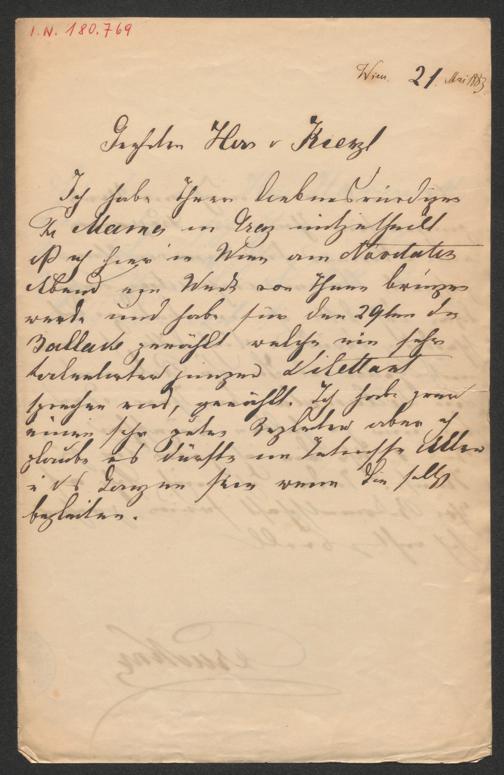 I.N. 180.769
Wien. 21. Mai 1883
Geehrter Herr v Kienzl
Ich habe Ihrer liebenswürdigen
Fr Mama in Graz mitgetheilt
daß ich hier in Wien am Novitäten
Abend ein Werk von Ihnen bringen
werde und habe für den 29ten die
Ballade gewählt welche ein sehr
talentirter junger Dilettant
sprechen wird, gewählt. Ich habe zwar
einen sehr guten Begleiter aber ich
glaube es dürfte im Interesse Aller
u des Ganzen sein wenn Sie selbst
begleiten.